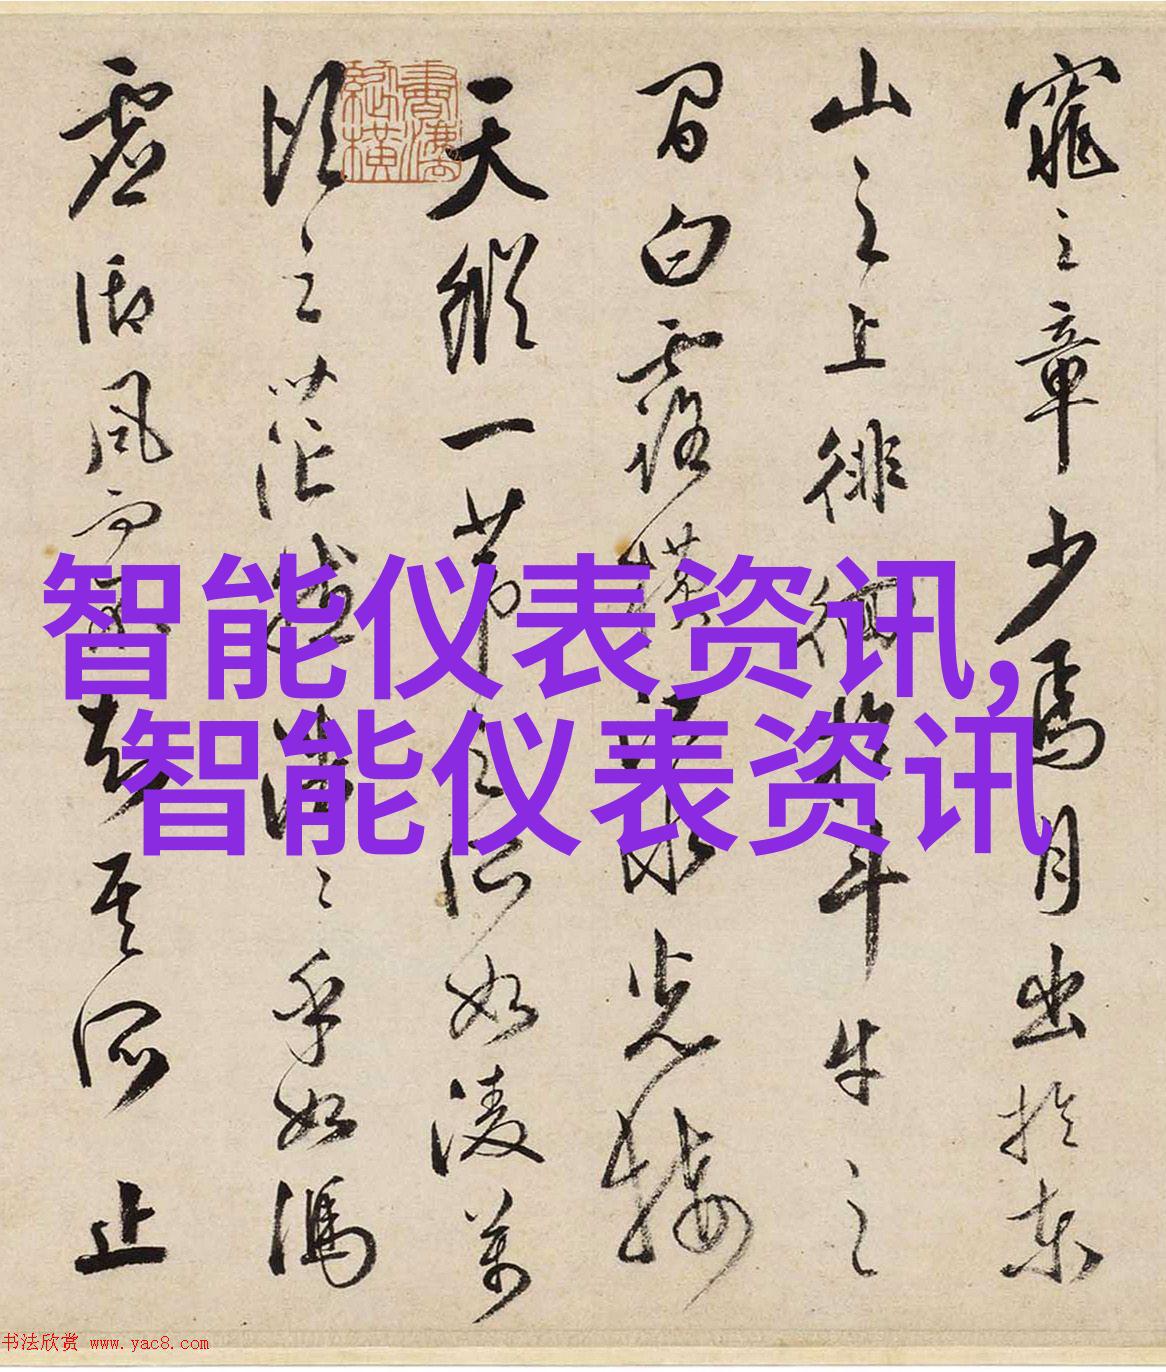 窕之章少焉月出於東
山之上徘徊於斗牛之
間白露橫江水光接
天縱一葦之所如陵萬
頃之茫然浩〻乎如馮
虛御風而不知其所止
智能仪表资讯,
智能仪表资讯
书法欣赏 www.yac8.com